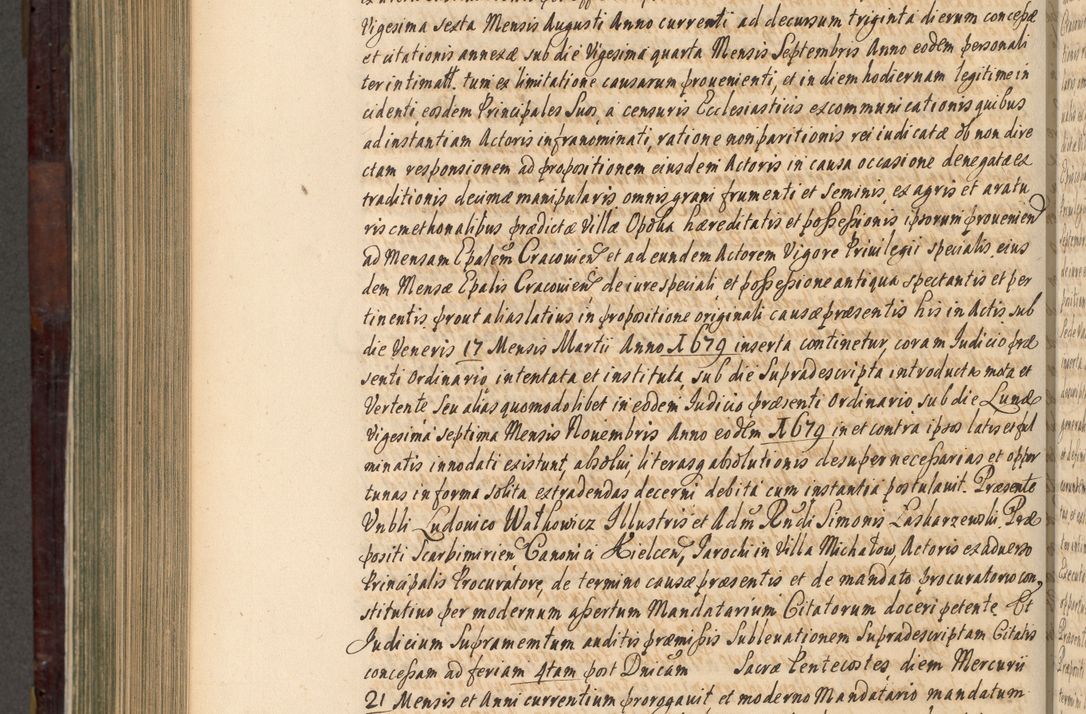 Vigesima sexta Mensis Augusti Anno currenti ad decursum triginta dierum concessæ
et citationis annexæ sub die Vigesima quarta Mensis Septembris Anno eodem personali
ter intimatt. tum ex limitatione causarum prouenienti, et in diem hodiernam legitime in
cidenti eosdem Principales Suos a censuris Ecclesiasticis excommunicationis quibus
ad instantiam Actoris infranominati, ratione non paritionis rei iudicatæ ob non dire
ctam responsionem ad propositionem eiusdem Actoris in causa occasione denegatæ ex
traditionis decimæ manipularis omnis grani frumenti et seminis ex agris et aratu
ris cmethonalibus prædictæ Villæ Opoka hæreditatis et possessionis ipsorum prouenien
ad Mensam Epalem Cracouien et ad eundem Actorem Vigore Priuilegii specialis eius
dem Mensæ Epalis Cracouien de iure speciali et possessione antiqua spectantis et per
tinentis prout alias latius in propositione originali causæ præsentis his in Actis sub
die Veneris 17 Mensis Martii Anno 1679 inserta continetur, coram Iudicio præ
senti Ordinario intentata et instituta, sub die Supradescripta introducta mota et
Vertente seu alias quomodolibet in eodem Iudicio præsenti Ordinario sub die Lunæ
Vigesima septima Mensis Nouembris Anno eodem 1679 in et contra ipsos latis et ful
minatis innodati existunt, absolui, literasq absolutionis desuper necessarias et oppor
tunas in forma solita extradendas decerni debita cum instantia postulauit. Præsente
Vnbli Ludouico Watkowicz Illustris et Adm Rndi Simonis Lasharzewski Præ
positi Scarbimirien Canonici Kielcen, Parochi in Villa Michałow, Actoris ex aduerso
Principalis Procuratore, de termino causæ præsentis et de mandato procuratorio con,
stitutiuo per modernum assertum Mandatarium Citatorum doceri petente Et
Judicium Supramemtum auditis præmissis Subleuationem Supradescriptam Citatis
concessam ad feriam 4tam post Dnicam Sacræ Pentecostes diem Mercurii
21 Mensis et Anni currentium prorogauit et moderno Mandatario mandatum